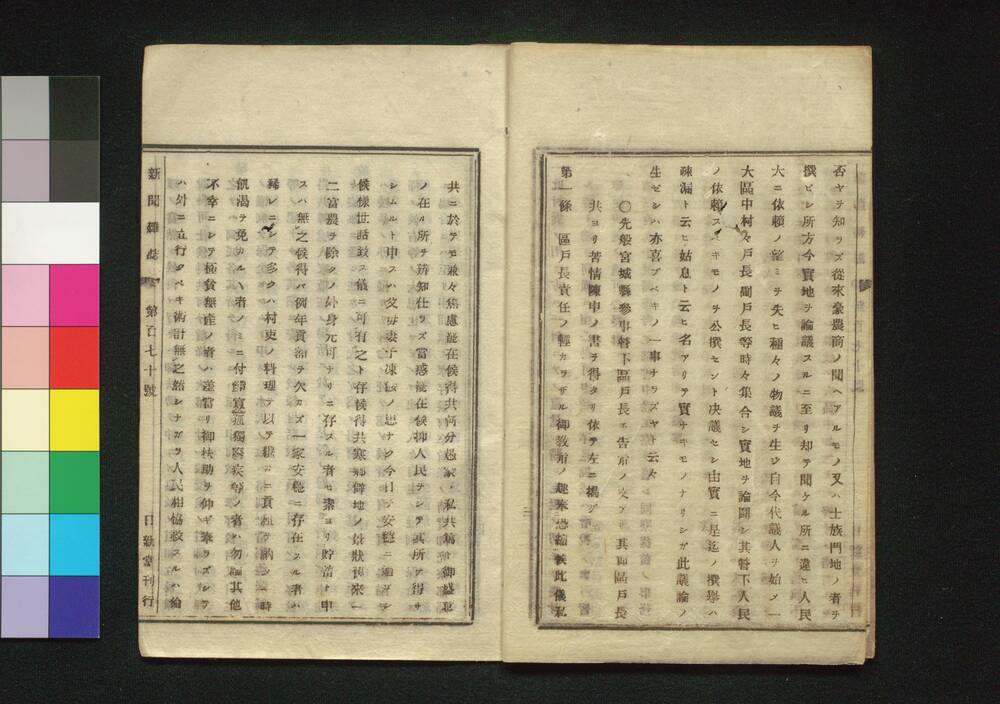 否ヤヲ知ラズ從來豪農商ノ聞ヘアルモノ又ハ士族門地ノ者ヲ
撰ビシ所方今實地ヲ論議スルニ至リ知テ聞ケル所ニ違ヒ人民
大ニ依賴ノ望ミヲ失ヒ種々ノ物議ヲ生ジ自今代議人ヲ始メ一
大區中村々戶長副戶長等時々集合シ實地ヲ論闘シ其轄下人民
ノ依賴スベキモノヲ公撰セント決議セシ由實ニ是迄ノ撰擧ハ
疎漏ト云ヒ姑息ト云ヒ名アリテ實ナキモノナリシガ此議論ノ
生ゼシハ亦喜ブベキノ一事ナラズヤト云々
〇先般宮城縣參事轄下區戶長エ告布ノ文アリ其節區戶長
共ヨリ苦情陳申ノ書ヲ得タリ依テ左ニ揭グ
第一條 區戶長責任ノ輕カラザル御敎布ノ趣奉恐縮候此儀私
共ニ於テモ兼々焦慮罷在候得共何分愚昧ノ私共
ノ在ル所ヲ辨知仕ラズ當惑罷在候抑人民ヲシテ其所ヲ得サ
シムルト申スハ父母妻子凍餒ノ思ナク今日ヲ安穩ニ
候樣世話致ス儀ニ可有之ト存候得共寒鄕僻地ノ狀
二富農ヲ除クノ外身元可ナリニ存スル者モ素ヨリ貯蓄ト申
スハ無之候得バ例年貢納ヲ欠カズ一家安穩ニ存在スル者ハ
稀レニシテ多クハ村吏ノ料理ヲ以テ貢租ヲ納メ一時
飢渴ヲ免カルヽ者ノミニ付鰥寡孤獨癈疾等ノ者ハ勿論其他
不幸ニシテ極貧無產ノ者ハ差當リ御扶助ヲ仰ギ奉ラズシテ
ハ外ニ立行クベキ術計無之然シナガラ人民相協救スルハ倫
新聞雜誌 第百七十號 日新堂刊行